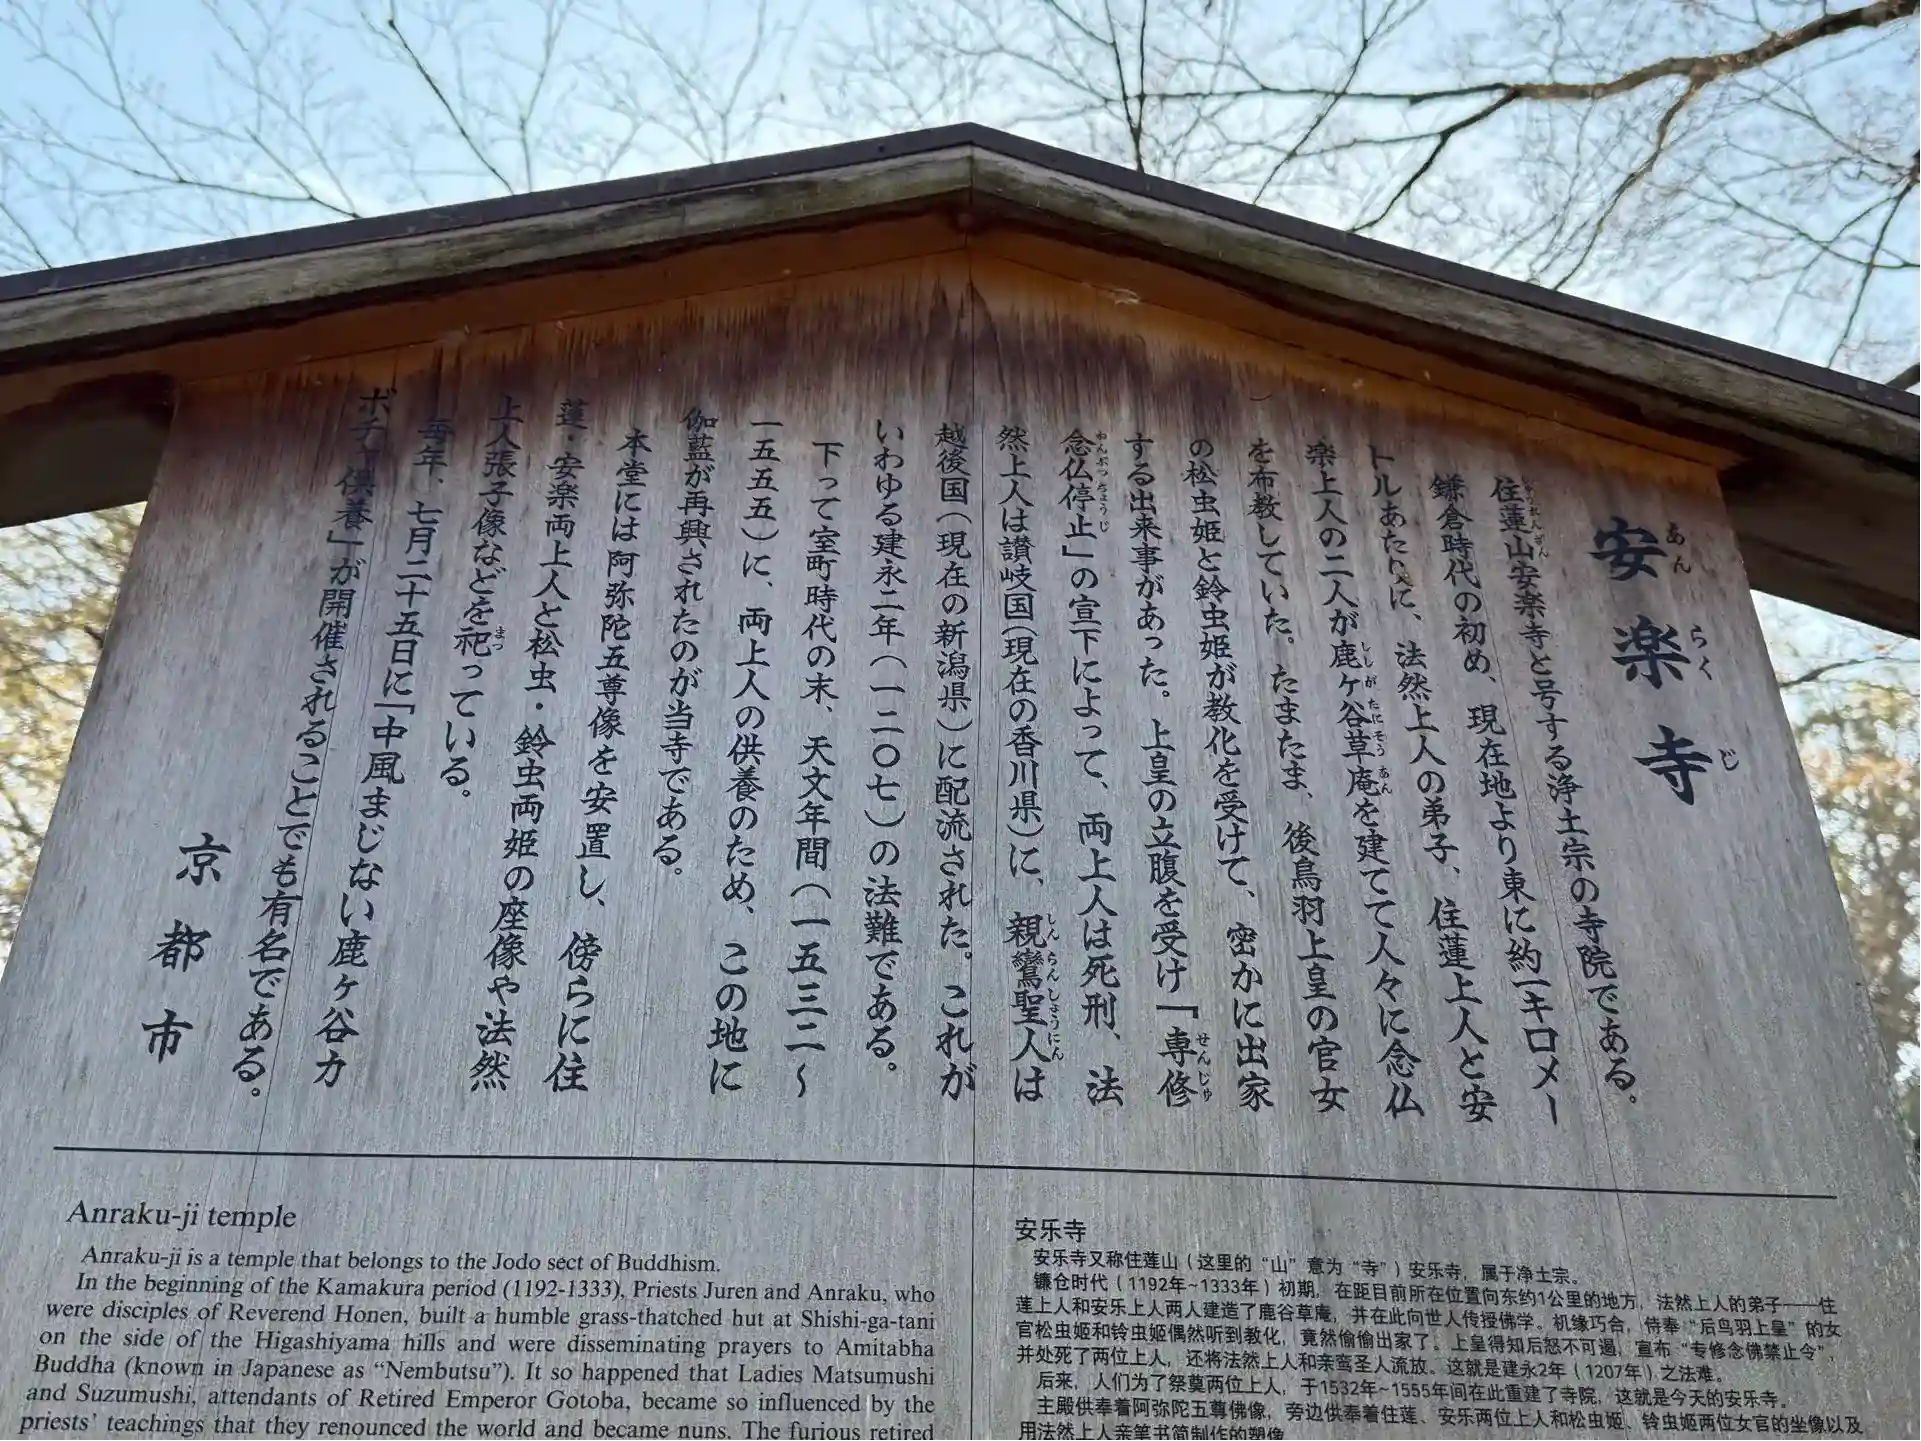 安楽寺
住蓮山安楽寺と号する浄土宗の寺院である。
鎌倉時代の初め、現在地より東に約一キロメー
トルあたりに、法然上人の弟子、住蓮上人と安
楽上人の二人が鹿ヶ谷草庵を建てて人々に念仏
を布教していた。たまたま、後鳥羽上皇の官女
の松虫姫と鈴虫姫が教化を受けて、密かに出家
する出来事があった。上皇の立腹を受け「専修
念仏停止」の宣下によって、両上人は死刑、法
然上人は讃岐国(現在の香川県)に、親鸞聖人は
越後国(現在の新潟県)に配流された。これが
いわゆる建永二年(一二〇七)の法難である。
下って室町時代の末、天文年間(一五三二〜
一五五五)に、両上人の供養のため、この地に
伽藍が再興されたのが当寺である。
本堂には阿弥陀五尊像を安置し、傍らに住
蓮・安楽両上人と松虫・鈴虫両姫の座像や法然
上人張子像などを祀っている。
毎年、七月二十五日に「中風まじない鹿ヶ谷カ
ボチャ供養」が開催されることでも有名である。
京都市
Anraku-ji temple
Anraku-ji is a temple that belongs to the Jodo sect of Buddhism.
In the beginning of the Kamakura period (1192-1333), Priests Juren and Anraku, who
were disciples of Reverend Honen, built a humble grass-thatched hut at Shishi-ga-tani
on the side of the Higashiyama hills and were disseminating prayers to Amitabha
Buddha (known in Japanese as “Nembutsu”). It so happened that Ladies Matsumushi
and Suzumushi, attendants of Retired Emperor Gotoba, became so influenced by the
priests’ teachings that they renounced the world and became nuns. The furious retired
安乐寺
安乐寺又称住莲山（这里的“山”意为“寺”）安乐寺，属于净土宗。
镰仓时代（1192年~1333年）初期，在距目前所在位置向东约1公里的地方，法然上人的弟子——住
莲上人和安乐上人两人建造了鹿谷草庵，并在此向世人传授佛学。机缘巧合，侍奉“后鸟羽上皇”的女
官松虫姬和铃虫姬偶然听到教化，竟然偷偷出家了。上皇得知后怒不可遏，宣布“专修念佛禁止令”，
并处死了两位上人，还将法然上人和亲鸾圣人流放。这就是建永2年（1207年）之法难。
后来，人们为了祭奠两位上人，于1532年~1555年间在此重建了寺院，这就是今天的安乐寺。
主殿供奉着阿弥陀五尊佛像，旁边供奉着住莲、安乐两位上人和松虫姬、铃虫姬两位女官的坐像以及
用法然上人亲笔书简制作的塑像